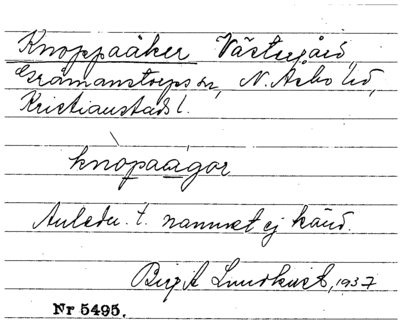 Knoppaåker Västergård,
Gråmanstorps sn, N. Åsbo hd,
Kristianstads l.
knòpaågar
Anledn. t. namnet ej känd.
Birgit Lundkvist, 1937
Nr 5495.